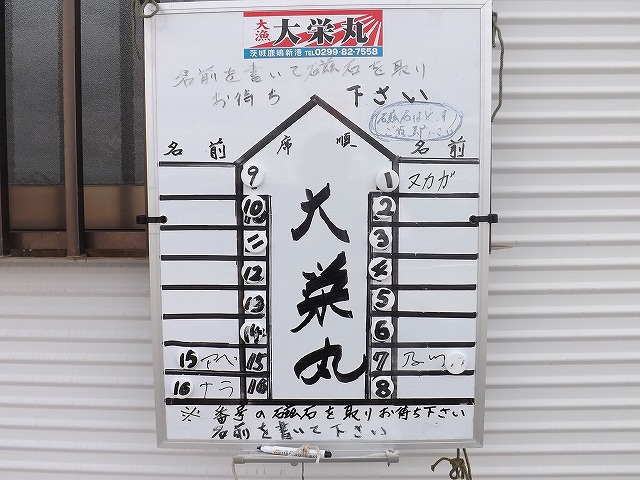 大漁 大栄丸
茨城鹿嶋新港 TEL0299-82-7558
名前を書いて磁石を取り
お待ち 下さい
名 前 席 順 名 前
9 1 ヌカガ
10 2
11 3
12 4
13 5
14 6
15 アベ 15 7
16 ナラ 16 8
大栄丸
※ 番号の磁石を取りお待ち下さい
名前を書いて下さい